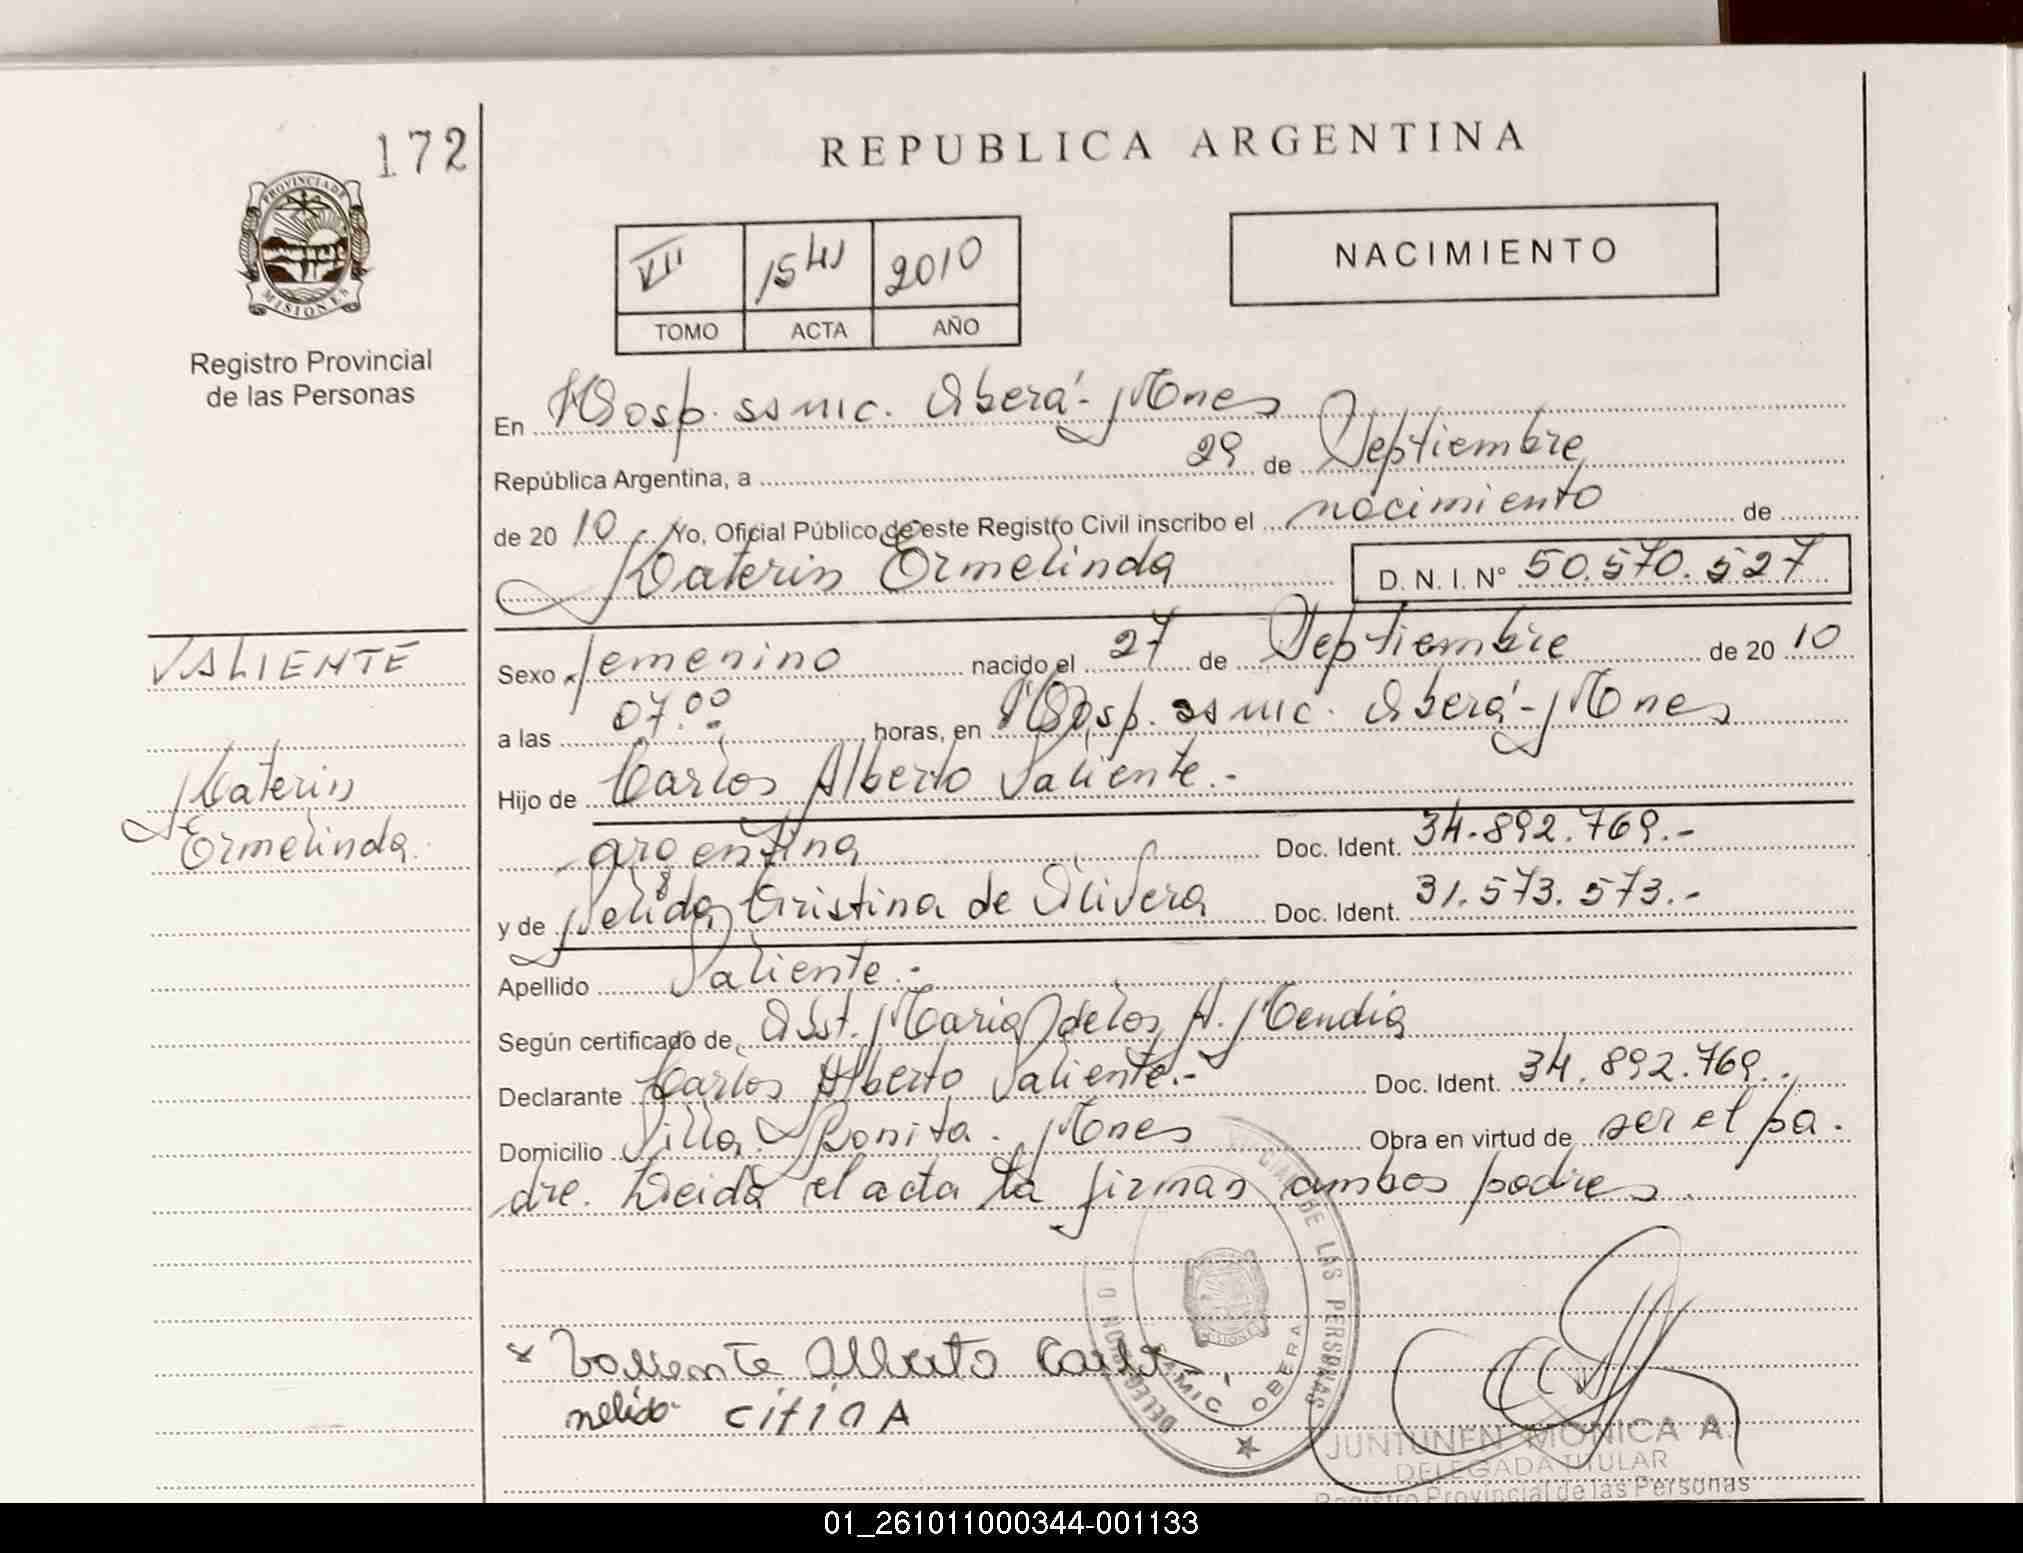 172
REPUBLICA ARGENTINA
PROVINCIA DE
MISIONES
Registro Provincial
de las Personas
VII 1541 2010
TOMO ACTA AÑO
NACIMIENTO
En Hosp. SAMIC. Oberá - Mnes
República Argentina, a 29 de Septiembre
de 2010 Yo, Oficial Público de este Registro Civil inscribo el nacimiento de
Katerin Ermelinda D. N. I. Nº 50.570.527
VALIENTE
Katerin
Ermelinda.
Sexo femenino nacido el 27 de Septiembre de 2010
a las 07.00 horas, en Hosp. SAMIC. Oberá - Mnes
Hijo de Carlos Alberto Valiente.-
argentina Doc. Ident. 34.892.769.-
y de Nelida Cristina de Olivera Doc. Ident. 31.573.573.-
Apellido Valiente.-
Según certificado de Obst. Maria de los A. Mendia
Declarante Carlos Alberto Valiente.- Doc. Ident. 34.892.769.
Domicilio Villa Bonita. Mnes Obra en virtud de ser el pa.
dre. Leida el acta la firman ambos padres
x Valiente Alberto Carlo
nelida
DE LAS PERSONAS
SAMIC OBERA
JUNTUNEN MONICA A.
DELEGADA TITULAR
Registro Provincial de las Personas
01_261011000344-001133